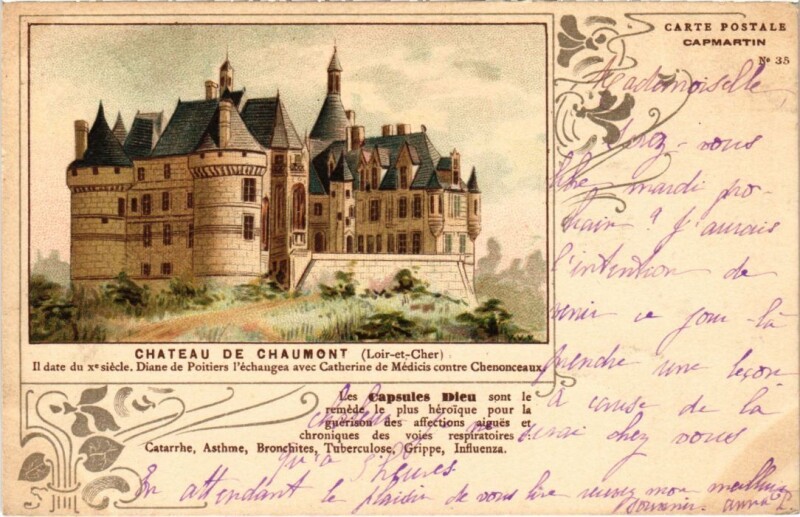 CARTE POSTALE
CAPMARTIN
Nº 35
CHATEAU DE CHAUMONT (Loir-et-Cher)
Il date du Xe siècle. Diane de Poitiers l'échangea avec Catherine de Médicis contre Chenonceaux.
Les Capsules Dieu sont le
remède le plus héroïque pour la
guérison des affections aiguës et
chroniques des voies respiratoires :
Catarrhe, Asthme, Bronchites, Tuberculose, Grippe, Influenza.
Mademoiselle,
Serez-vous
libre mardi pro-
chain ? J'aurais
l'intention de
venir ce jour-là
prendre une leçon
à cause de la
chaleur je ne serai chez vous
qu'à 5 heures
En attendant le plaisir de vous lire recevez mon meilleur
souvenir. Anna